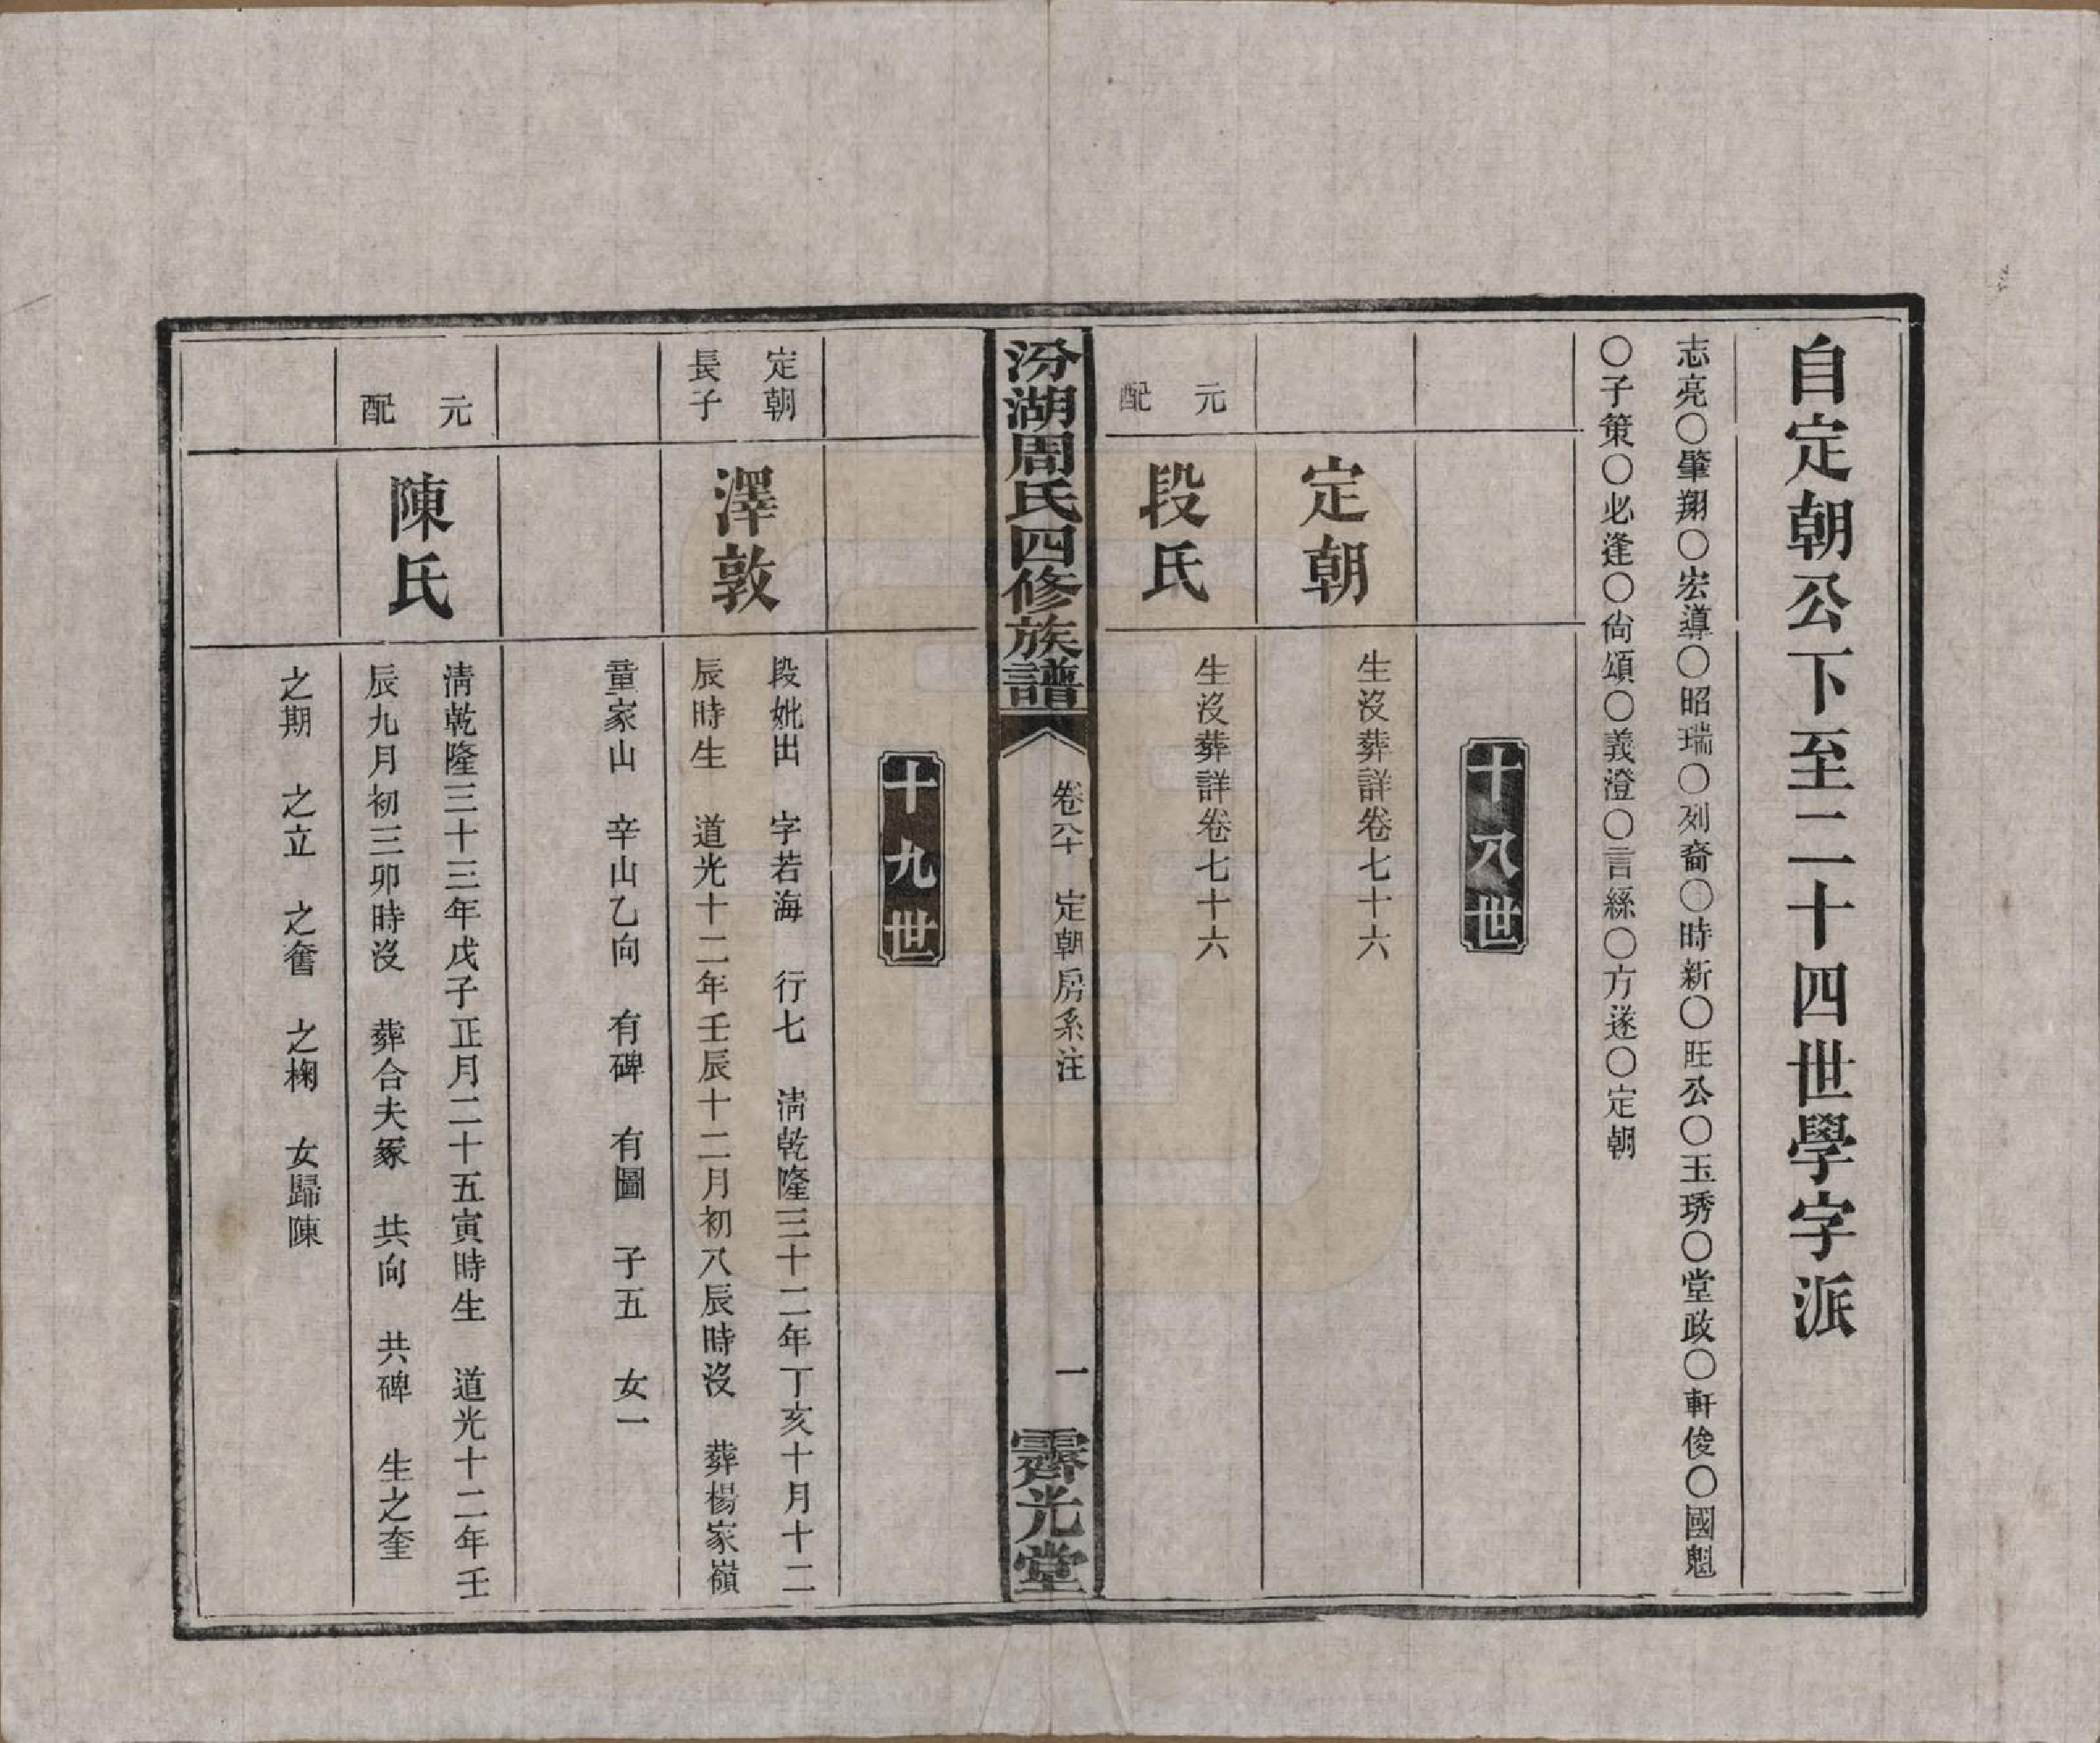 自定朝公下至二十四世學字派
志亮〇肇翔〇宏導〇昭瑞〇列裔〇時新〇旺公〇玉琇〇堂政〇軒俊〇國魁
〇子策〇必逢〇尙頌〇義澄〇言絲〇方遂〇定朝
十八世
定朝
生沒葬詳卷七十六
元配
段氏
生沒葬詳卷七十六
汾湖周氏四修族譜
卷八十
定朝房系注
一
霽光堂
十九世
定朝
長子
澤敦
段妣出 字若海 行七 淸乾隆三十二年丁亥十月十二
辰時生 道光十二年壬辰十二月初八辰時沒 葬楊家嶺
童家山 辛山乙向 有碑 有圖 子五 女一
元配
陳氏
淸乾隆三十三年戊子正月二十五寅時生 道光十二年壬
辰九月初三卯時沒 葬合夫冢 共向 共碑 生之奎
之期 之立 之奮 之椈 女歸陳